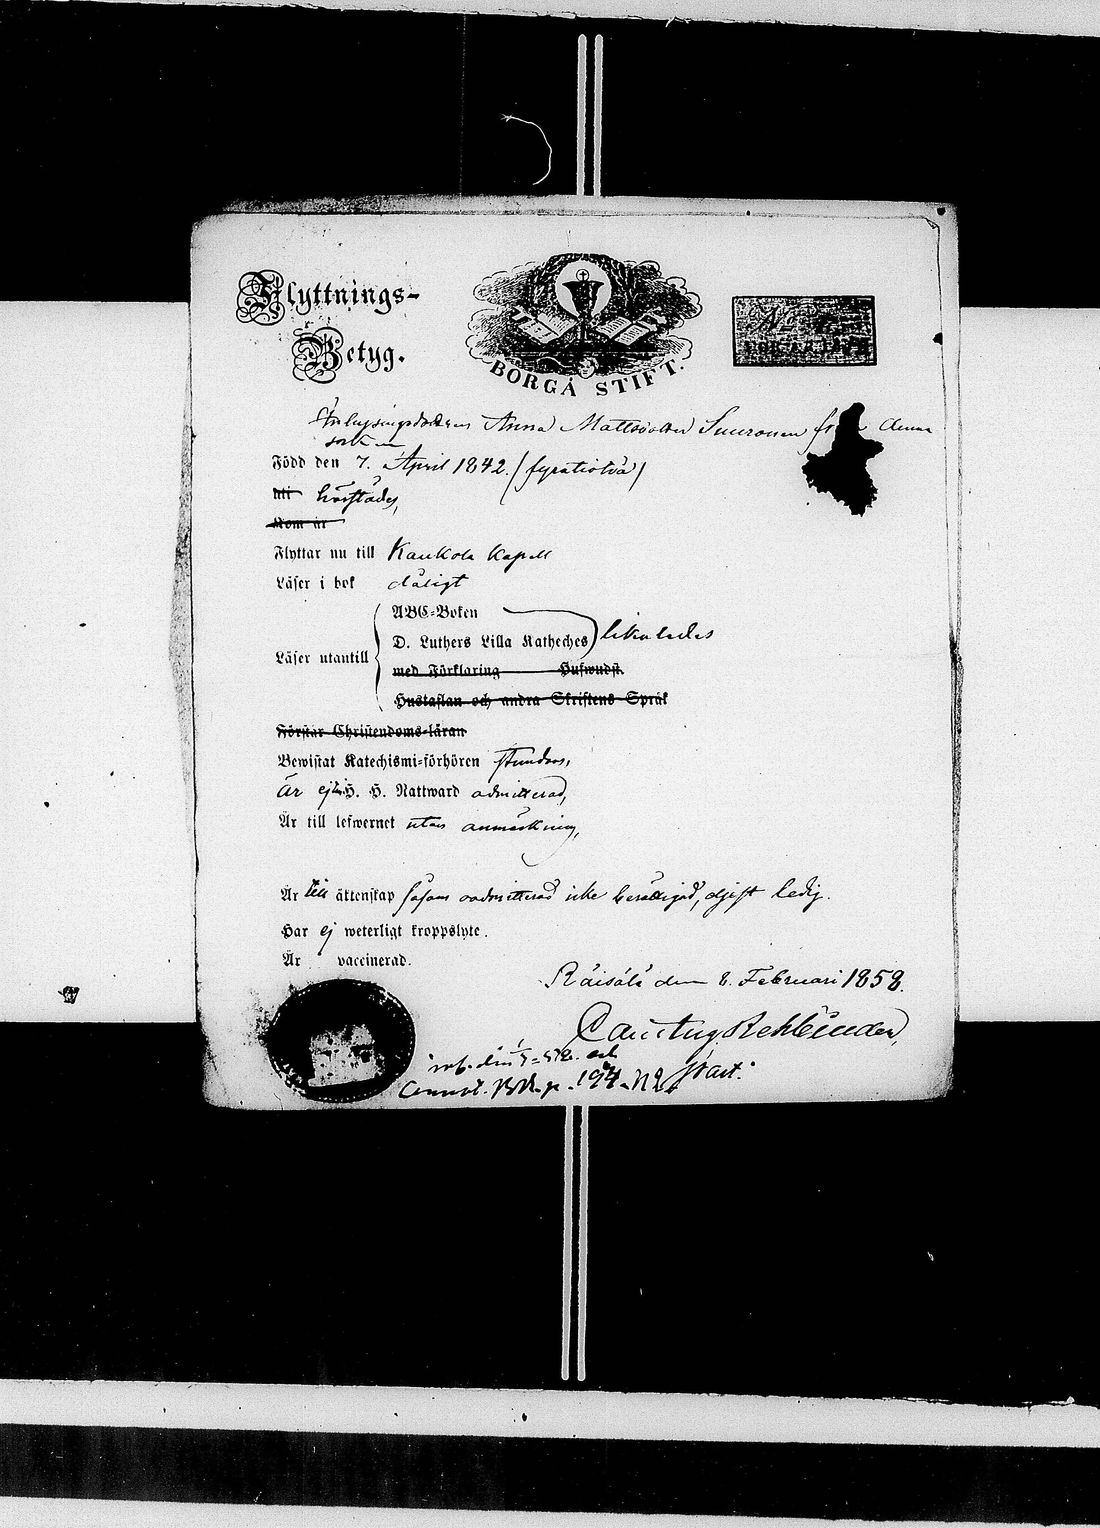 Flyttnings-
Betyg.
BORGÅ STIFT.
Inhysingsdottren Anna Mattsdotter Suuronen från denna
socken
Född den 7. April 1842. (fyratiotvå)
uti härstädes,
Kom år
Flyttar nu till Kaukola Kapell
Läser i bok dåligt
ABC-Boken
D. Luthers Lilla Katheches likaledes
Läser utantill
med Förklaring Hufwudst.
Hustaflan och andra Skriftens Språk
Förstår Christendoms-läran
Bewistat Katechismi-förhören stundom,
Är ej H. H. Nattward admitterad,
Är till lefwernet utan anmärkning,
Är till äktenskap såsom oadmitterad icke berättigad, ledig.
Har ej weterligt kroppslyte.
Är vaccinerad.
Räisälä den 8. Februari 1858.
Rehbinder,
Annot. p. 194.